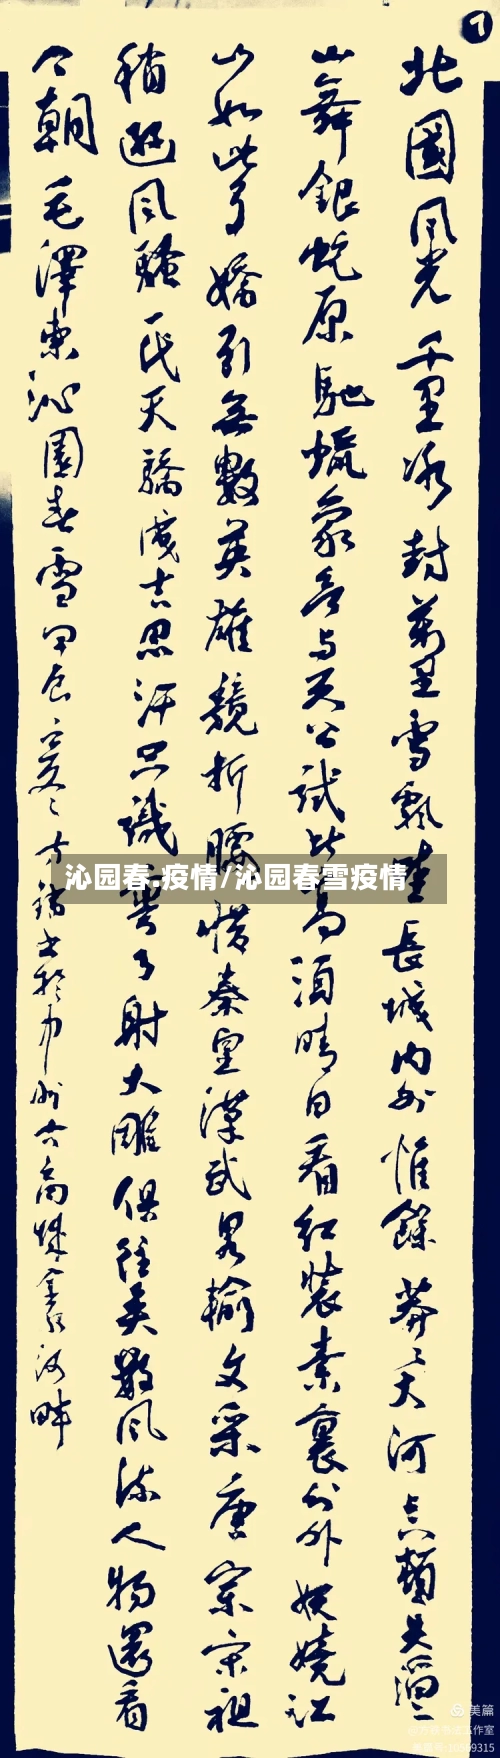 北國風光千里冰封萬里雪飄望長城內外惟餘莽莽大河上下頓失滔滔
山舞銀蛇原馳蠟象欲与天公試比高須晴日看紅裝素裹分外妖嬈江
山如此多嬌引無數英雄競折腰惜秦皇漢武略輸文采唐宗宋祖
稍遜風騷一代天驕成吉思汗只識彎弓射大雕俱往矣數風流人物還看
今朝 毛澤東沁園春雪甲辰
沁园春.疫情/沁园春雪疫情
美篇